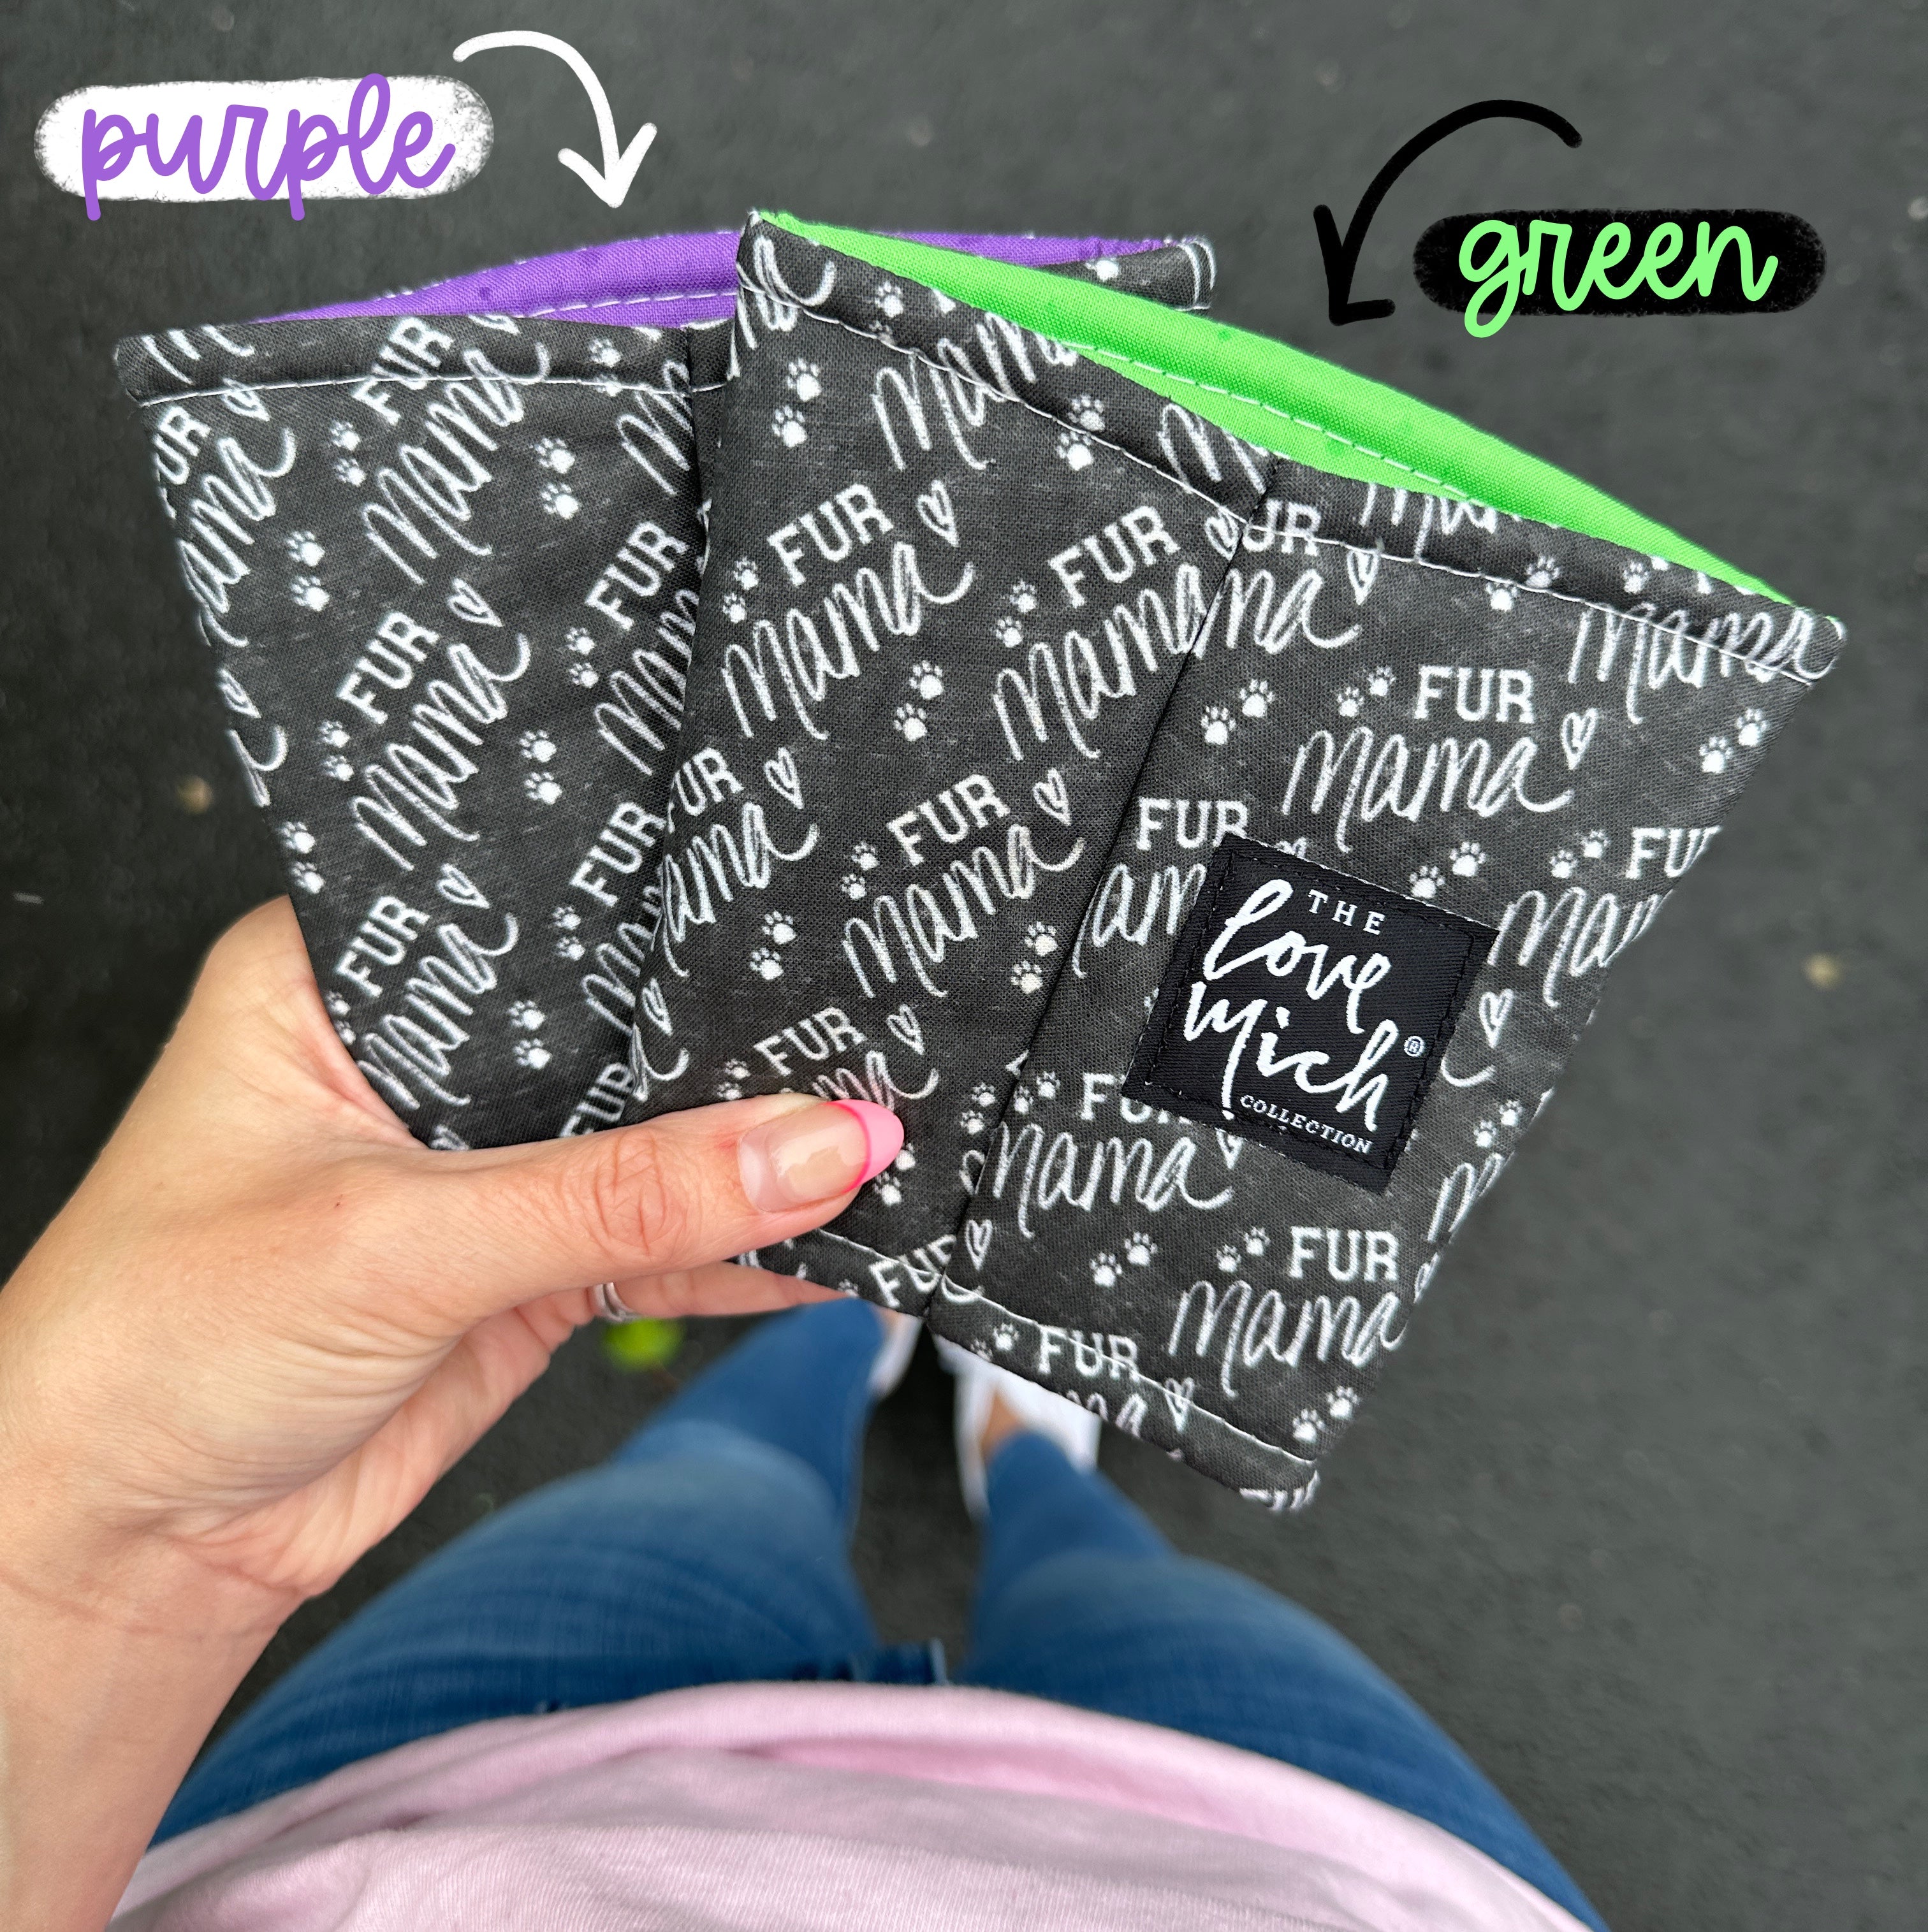 purple
green
FUR
mama
FUR
mama
FUR
mama
FUR
mama
FUR
mama
FUR
mama
FUR
mama
FUR
mama
FUR
mama
FUR
mama
THE
love
Mich®
COLLECTION
FUR
mama
FUR
mama